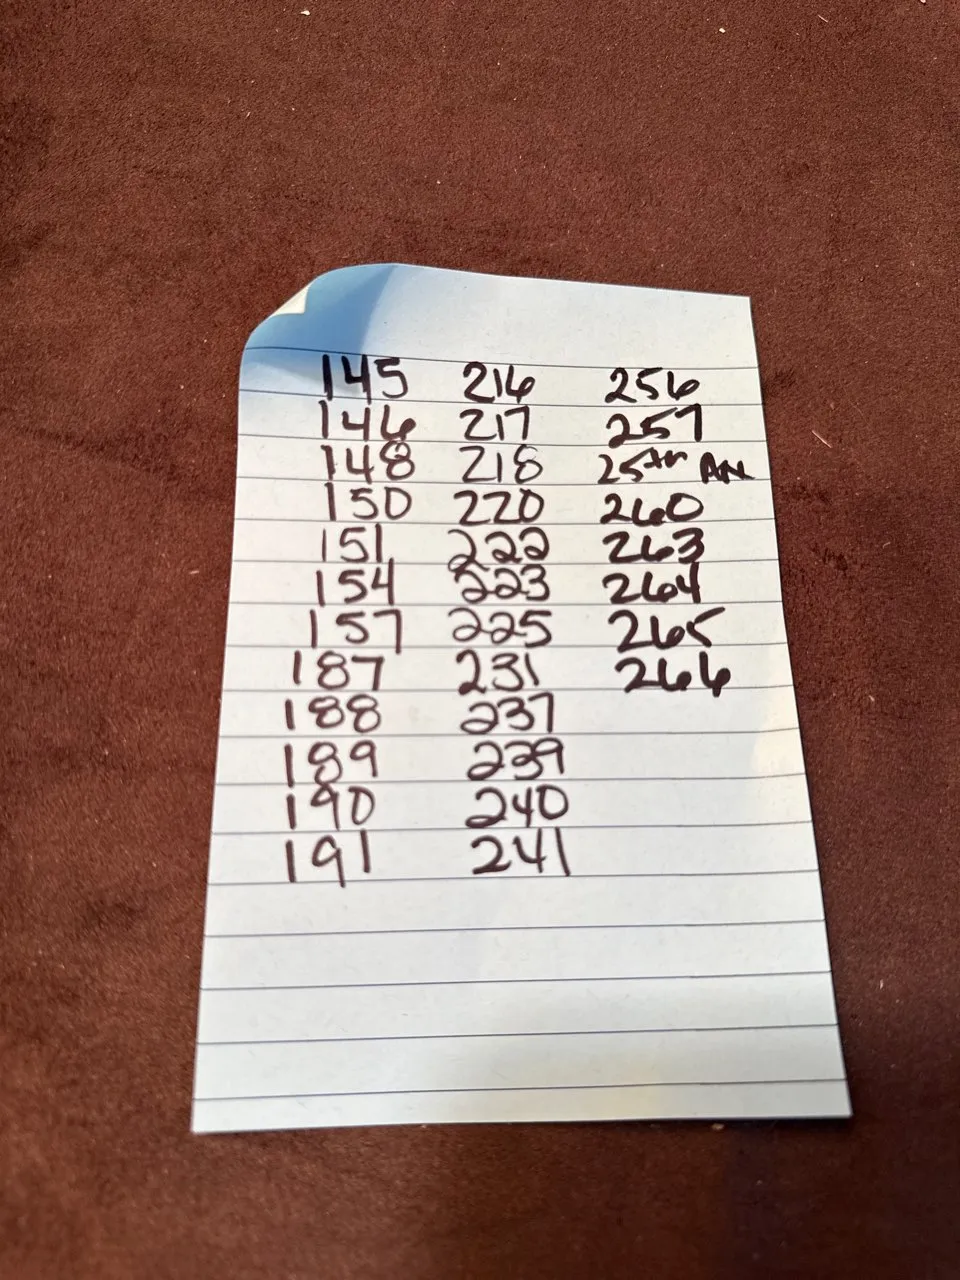 145 216 256
146 217 257
148 218 25th AN
150 220 260
151 222 263
154 223 264
157 225 265
187 231 266
188 237
189 239
190 240
191 241